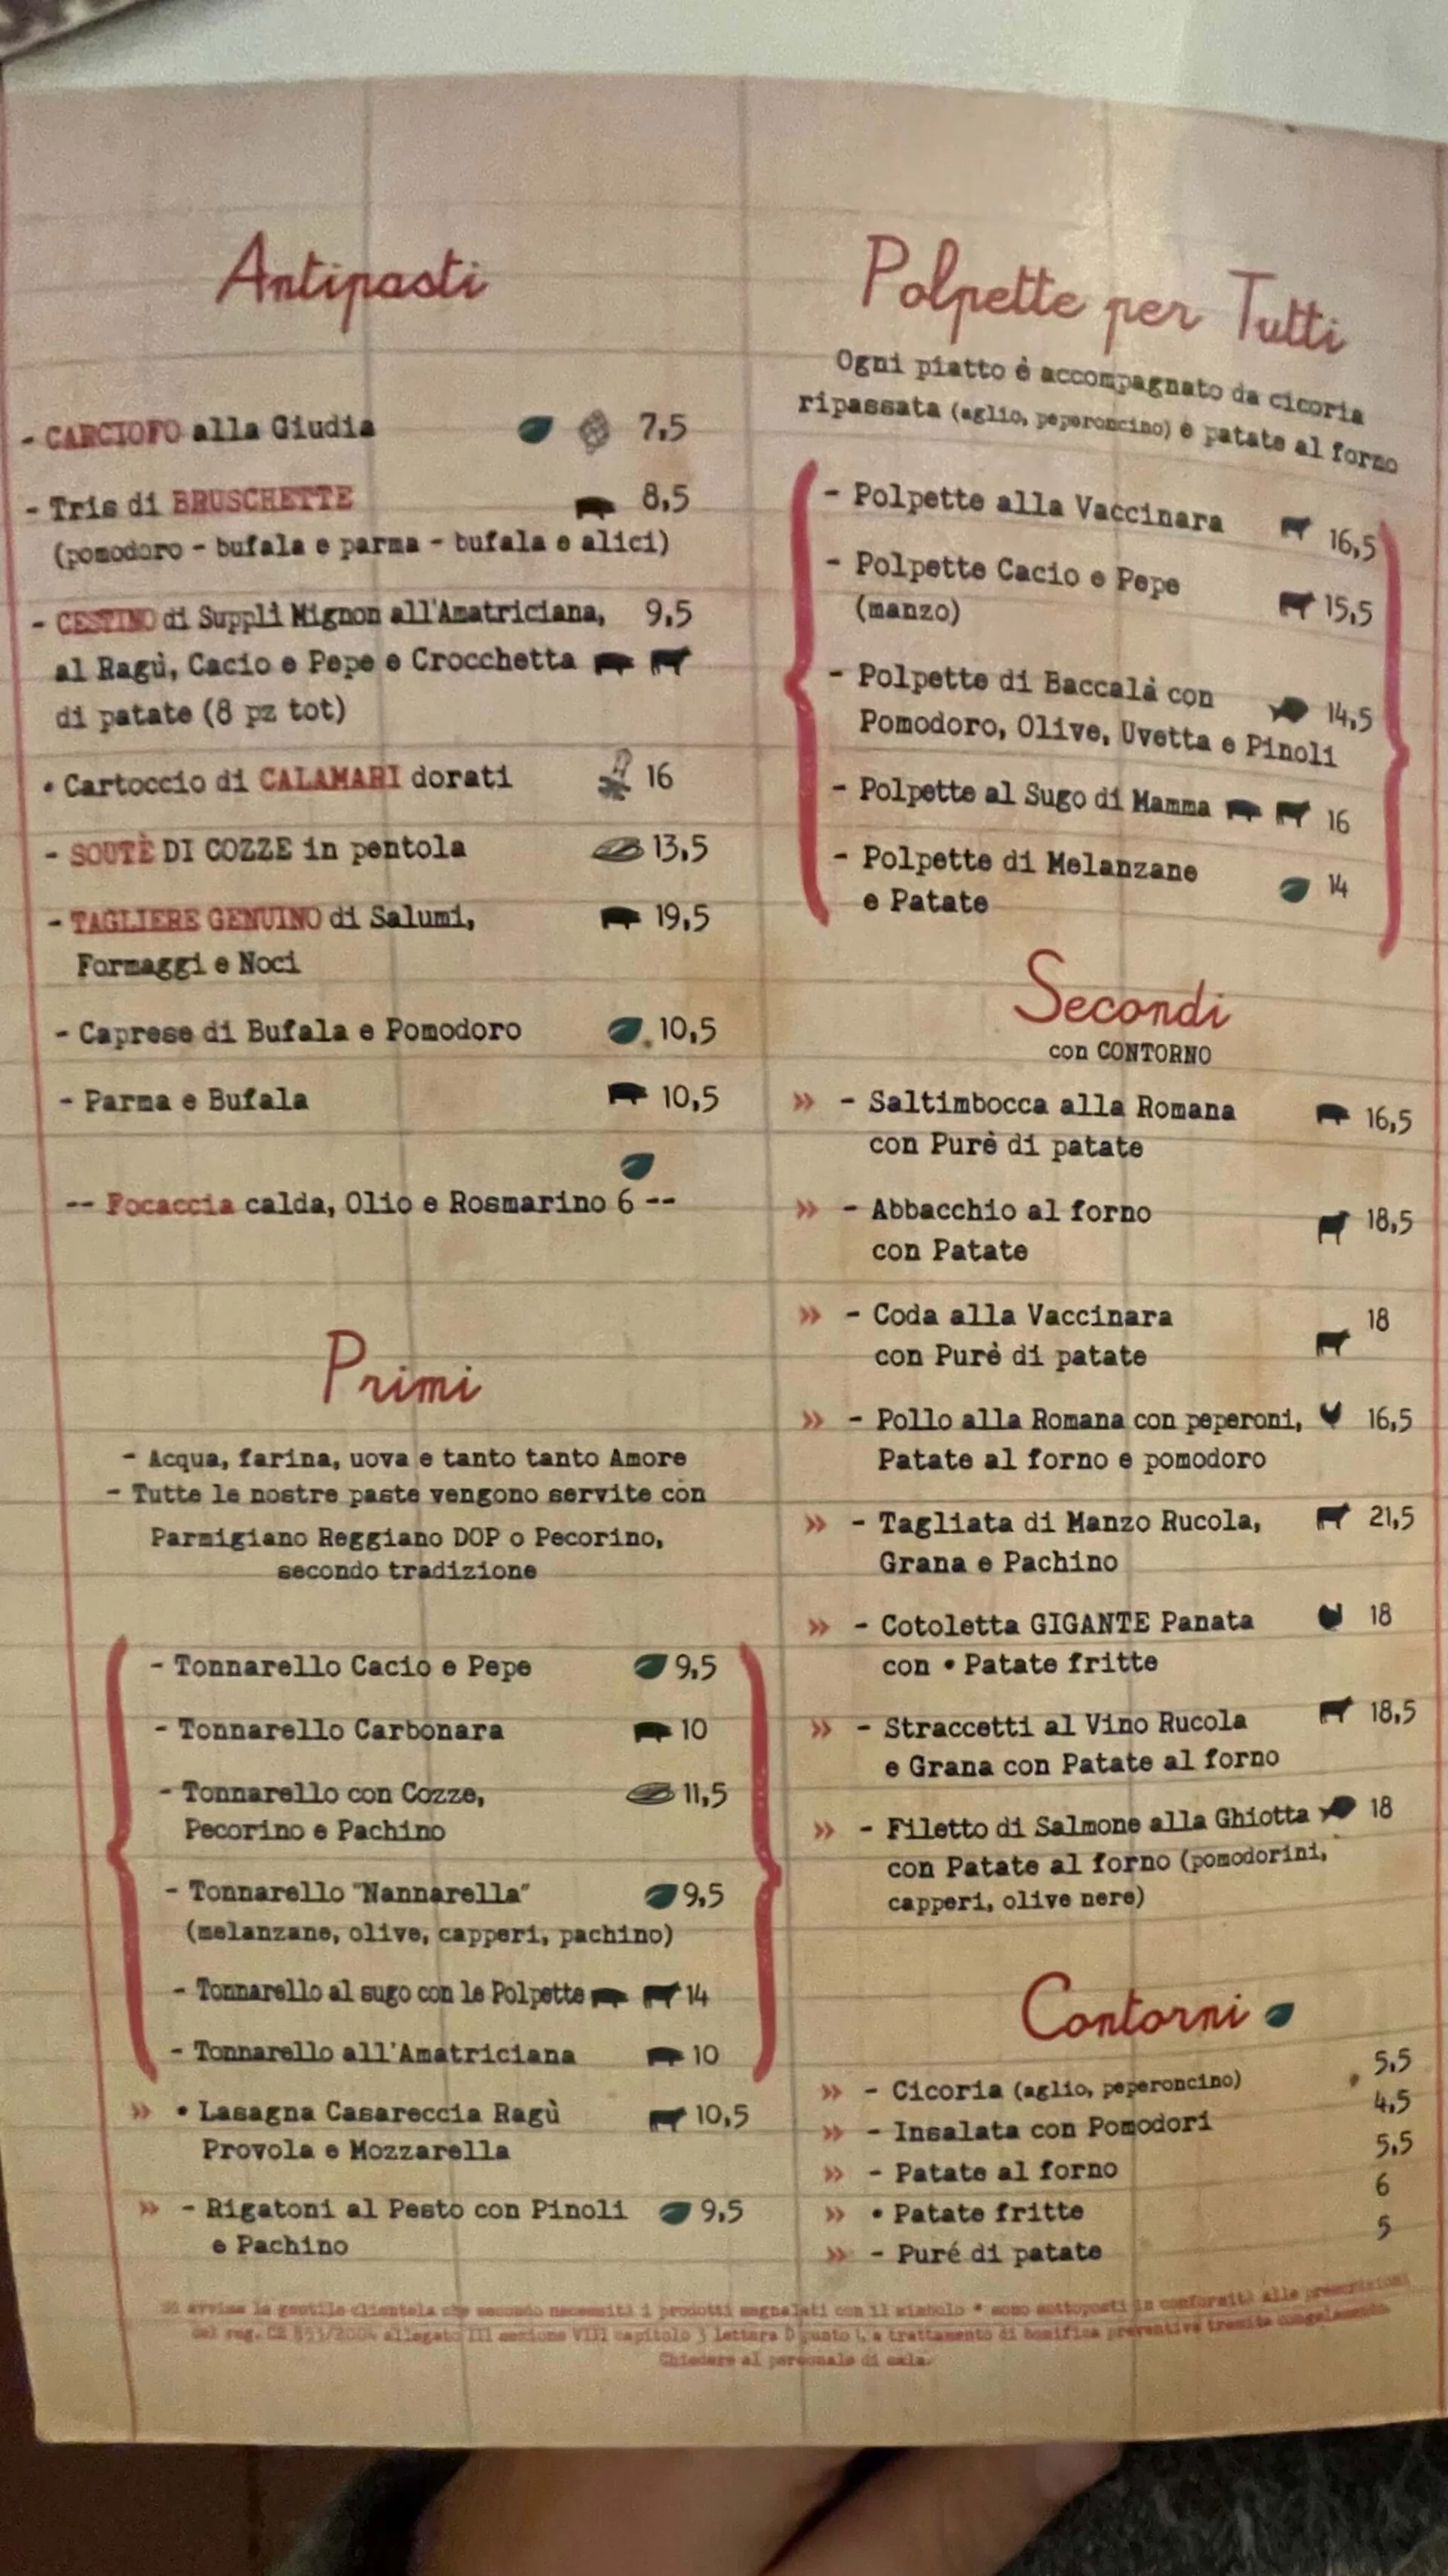 Antipasti
- CARCIOFO alla Giudia 7,5
- Tris di BRUSCHETTE 8,5
(pomodoro - bufala e parma - bufala e alici)
- CESTINO di Supplì Mignon all'Amatriciana, 9,5
al Ragù, Cacio e Pepe e Crocchetta
di patate (8 pz tot)
• Cartoccio di CALAMARI dorati 16
- SOUTÈ DI COZZE in pentola 13,5
- TAGLIERE GENUINO di Salumi, 19,5
Formaggi e Noci
- Caprese di Bufala e Pomodoro 10,5
- Parma e Bufala 10,5
-- Focaccia calda, Olio e Rosmarino 6 --
Primi
- Acqua, farina, uova e tanto tanto Amore
- Tutte le nostre paste vengono servite con
Parmigiano Reggiano DOP o Pecorino,
secondo tradizione
- Tonnarello Cacio e Pepe 9,5
- Tonnarello Carbonara 10
- Tonnarello con Cozze, 11,5
Pecorino e Pachino
- Tonnarello "Nannarella" 9,5
(melanzane, olive, capperi, pachino)
- Tonnarello al sugo con le Polpette 14
- Tonnarello all'Amatriciana 10
» • Lasagna Casareccia Ragù 10,5
Provola e Mozzarella
» - Rigatoni al Pesto con Pinoli 9,5
e Pachino
Polpette per Tutti
Ogni piatto è accompagnato da cicoria
ripassata (aglio, peperoncino) e patate al forno
- Polpette alla Vaccinara 16,5
- Polpette Cacio e Pepe 15,5
(manzo)
- Polpette di Baccalà con 14,5
Pomodoro, Olive, Uvetta e Pinoli
- Polpette al Sugo di Mamma 16
- Polpette di Melanzane 14
e Patate
Secondi
con CONTORNO
» - Saltimbocca alla Romana 16,5
con Purè di patate
» - Abbacchio al forno 18,5
con Patate
» - Coda alla Vaccinara 18
con Purè di patate
» - Pollo alla Romana con peperoni, 16,5
Patate al forno e pomodoro
» - Tagliata di Manzo Rucola, 21,5
Grana e Pachino
» - Cotoletta GIGANTE Panata 18
con • Patate fritte
» - Straccetti al Vino Rucola 18,5
e Grana con Patate al forno
» - Filetto di Salmone alla Ghiotta 18
con Patate al forno (pomodorini,
capperi, olive nere)
Contorni
» - Cicoria (aglio, peperoncino) 5,5
» - Insalata con Pomodori 4,5
» - Patate al forno 5,5
» • Patate fritte 6
» - Puré di patate 5
Si avvisa la gentile clientela che secondo necessità i prodotti segnalati con il simbolo * sono sottoposti in conformità alle prescrizioni
del reg. CE 853/2004 allegato III sezione VIII capitolo 3 lettera D punto a trattamento di bonifica preventiva tramite congelamento.
Chiedere al personale di sala.